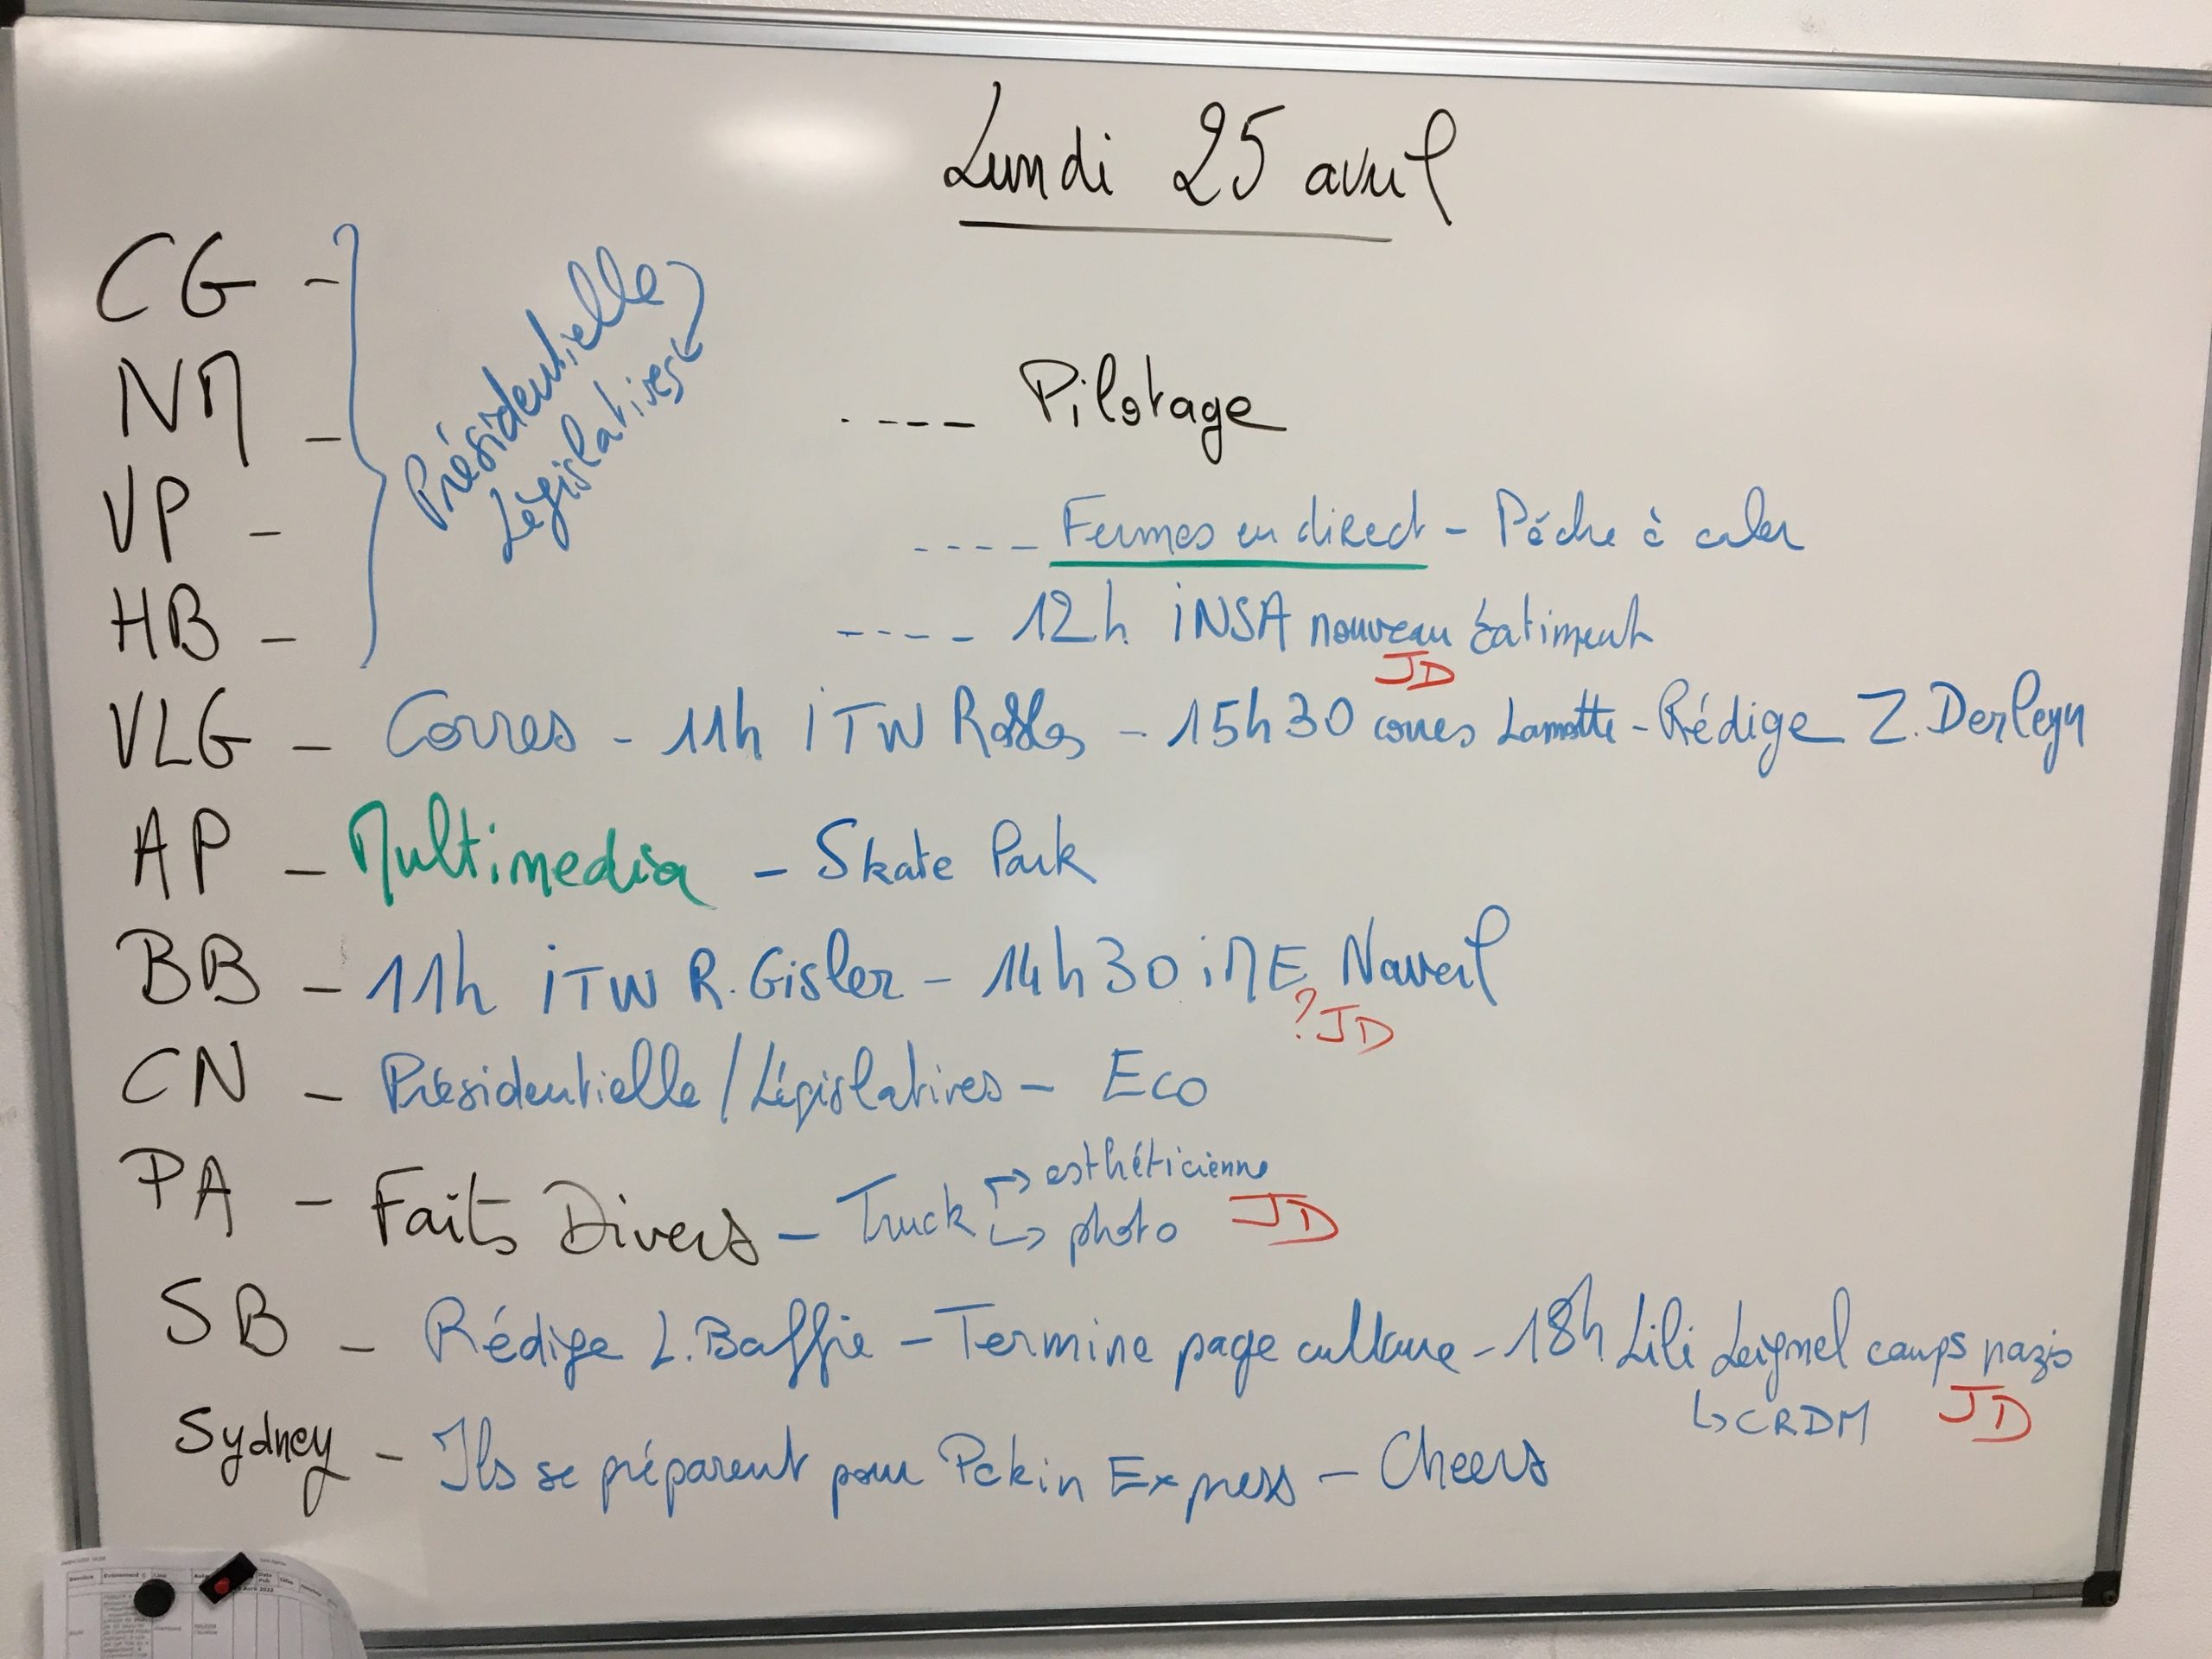 Lundi 25 avril
CG -
Présidentielle
Législatives
NM - ---- Pilotage
VP - ---- Fermes en direct - Pêche à caler
HB - ---- 12h INSA nouveau bâtiment
JD
VLG - Corres - 11h ITW - 15h30 corres Lamotte - Rédige Z. Derleyn
AP - Multimedia - Skate Park
BB - 11h ITW R. Gisler - 14h30 IME Naveil
? JD
CN - Présidentielle / Législatives - Eco
PA - Faits Divers - Truck → esthéticienne
↳ photo JD
SB - Rédige L. Baffie - Termine page culture - 18h Lili Leignel camps nazis
↳ CRDM JD
Sydney - Ils se préparent pour Pékin Express - Cheers